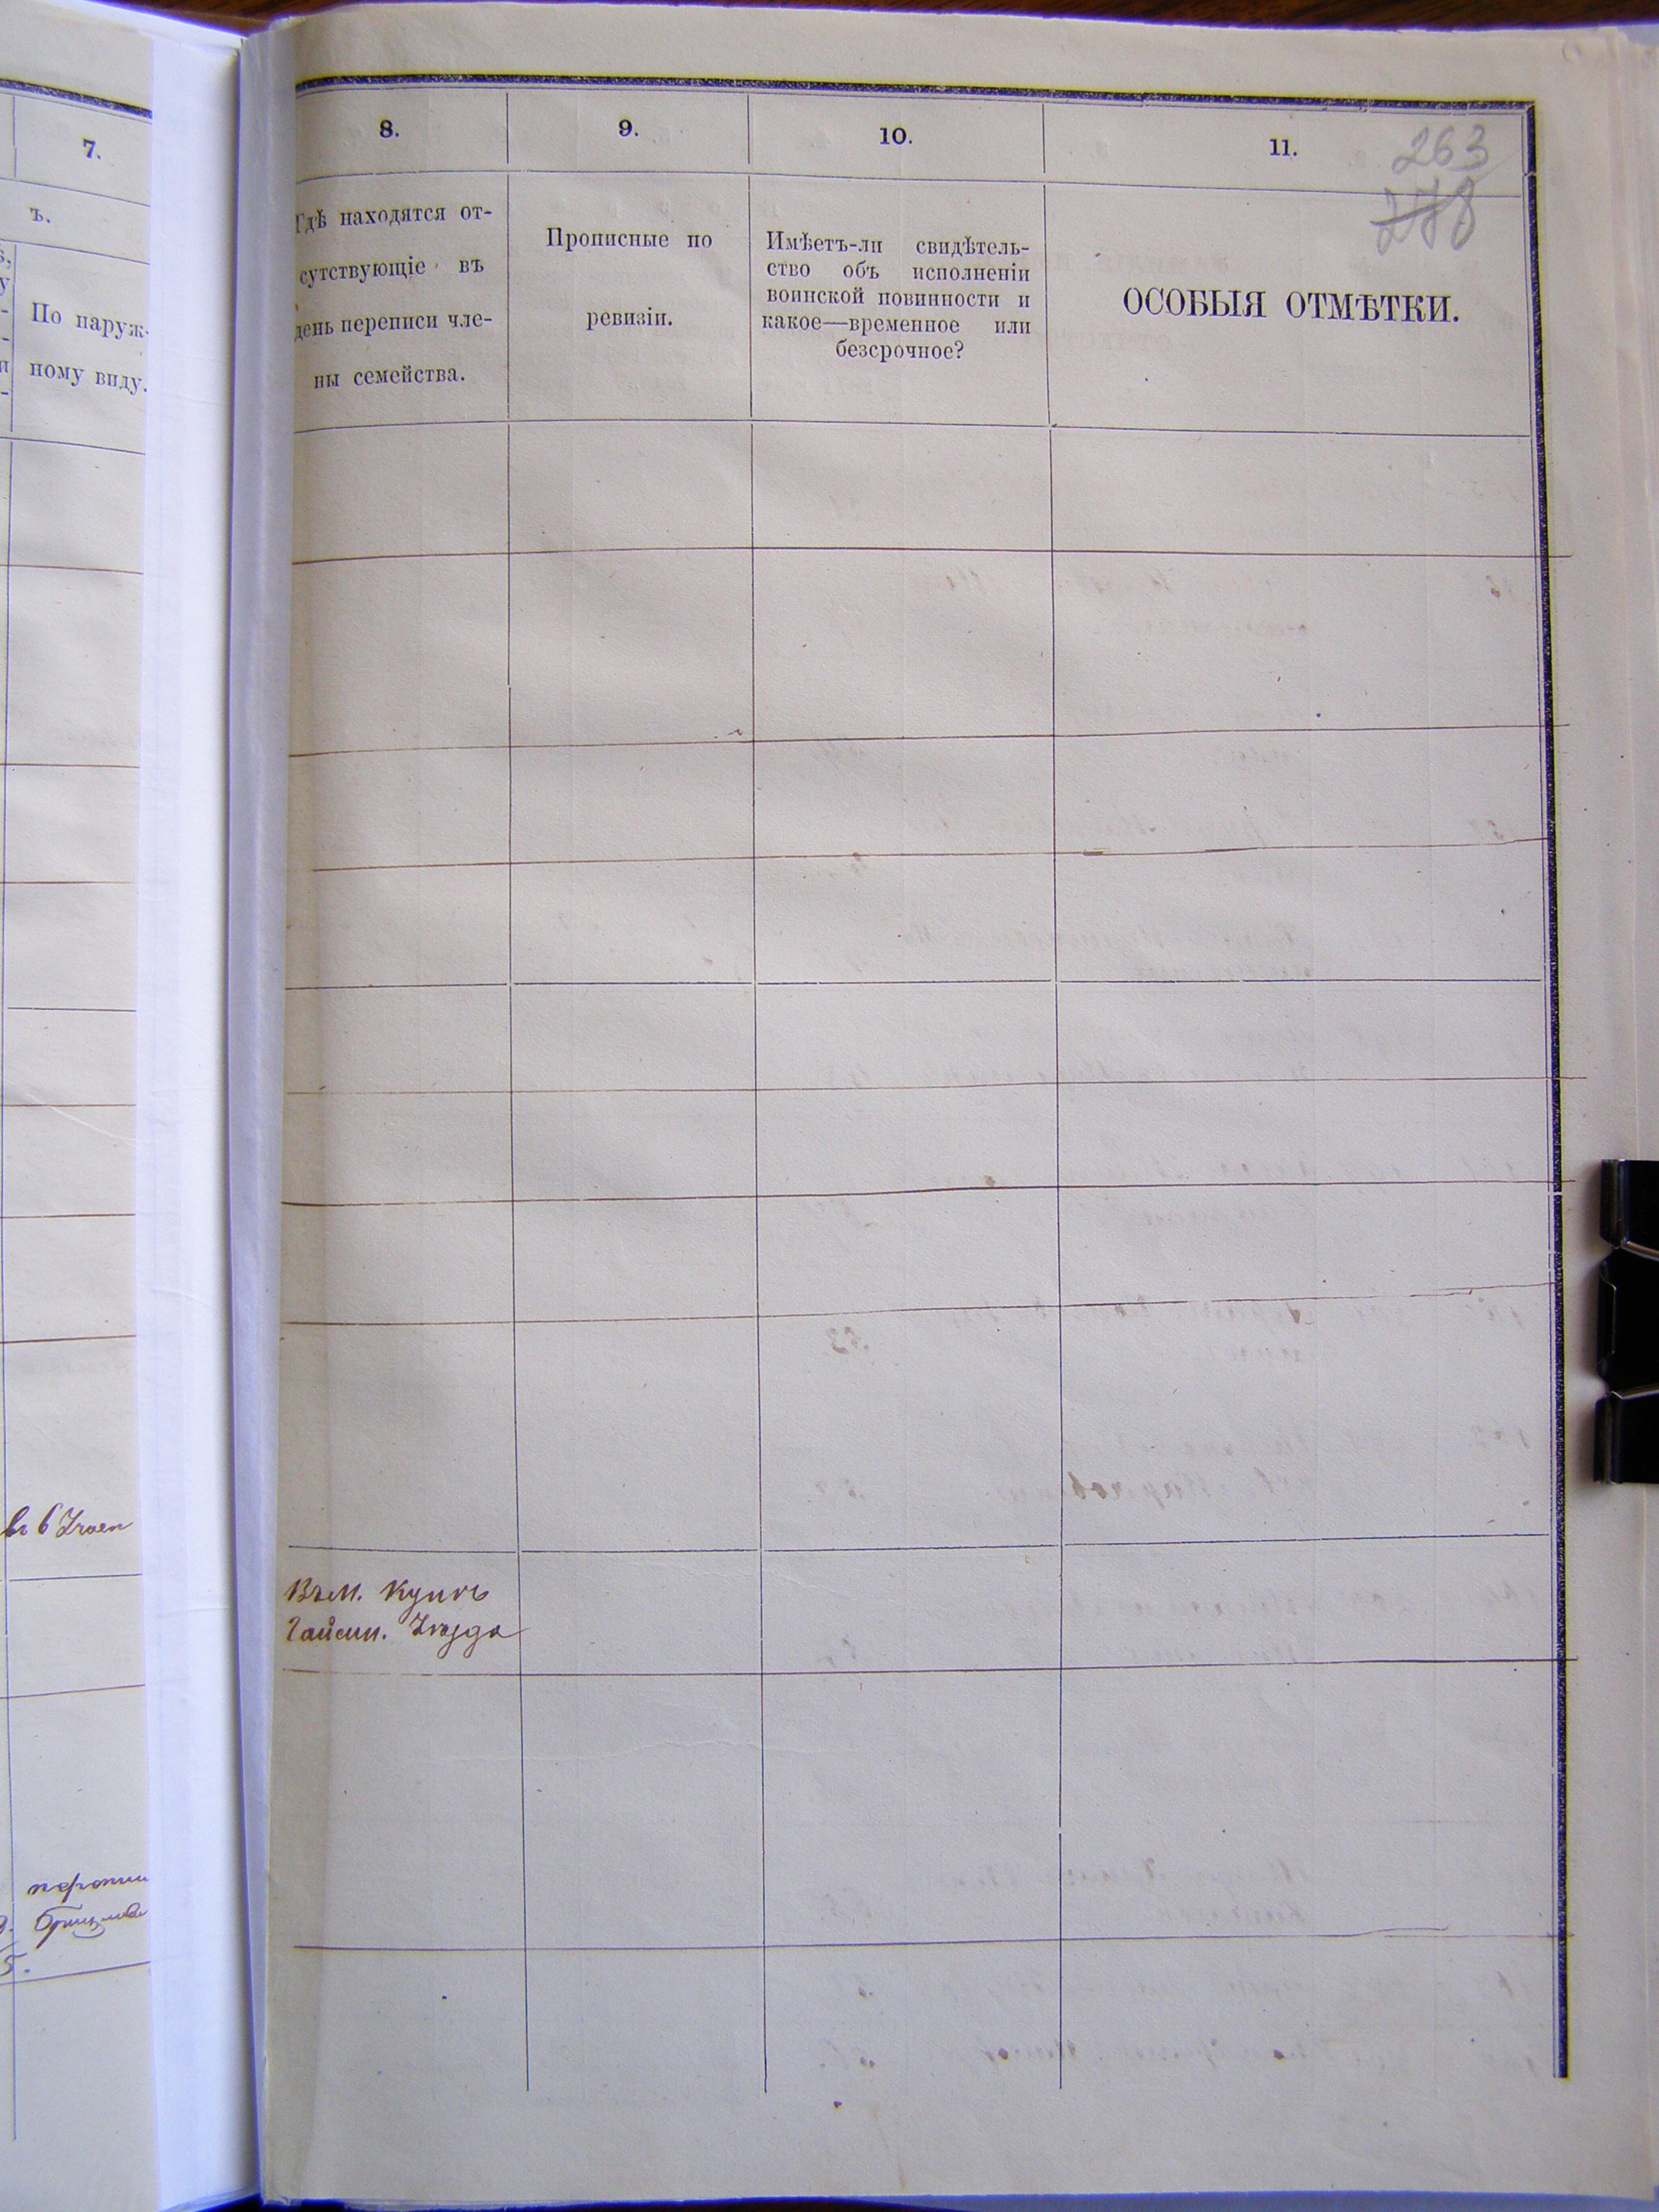 7.
ъ.
По наруж-
ному виду.
8.
9.
10.
11.
263
278
Гдѣ находятся от-
сутствующіе въ
день переписи чле-
ны семейства.
Прописные по
ревизіи.
Имѣетъ-ли свидѣтель-
ство объ исполненіи
воинской повинности и
какое—временное или
безсрочное?
ОСОБЫЯ ОТМѢТКИ.
Въ м.
Гайсин. Уѣзда